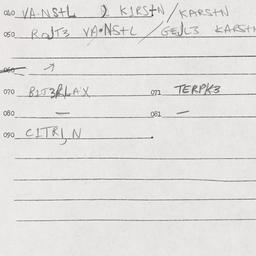 040 VA·NS+L & KIRS+N / KARS+N
050 ROJT3 VA·NS+L / GEJL3 KARS+N
060
070 BIT3RLAX 071 TERPK3
080 — 081 —
090 CITRJ,N